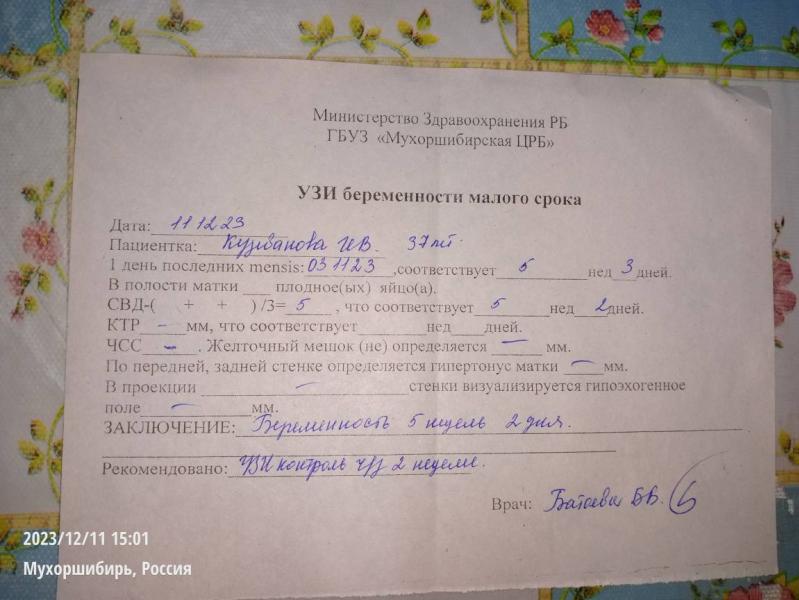 Министерство Здравоохранения РБ
ГБУЗ «Мухоршибирская ЦРБ»
УЗИ беременности малого срока
Дата: 11 12 23
Пациентка: И.В. 37 лет
1 день последних mensis: 03 11 23, соответствует 5 нед 3 дней.
В полости матки ___ плодное(ых) яйцо(а).
СВД-( + + ) /3= 5 , что соответствует 5 нед 2 дней.
КТР - мм, что соответствует нед дней.
ЧСС - . Желточный мешок (не) определяется - мм.
По передней, задней стенке определяется гипертонус матки - мм.
В проекции - стенки визуализируется гипоэхогенное
поле - мм.
ЗАКЛЮЧЕНИЕ: Беременность 5 недель 2 дня.
Рекомендовано: УЗИ контроль ч/з 2 недели.
Врач: Б.В.
2023/12/11 15:01
Мухоршибирь, Россия